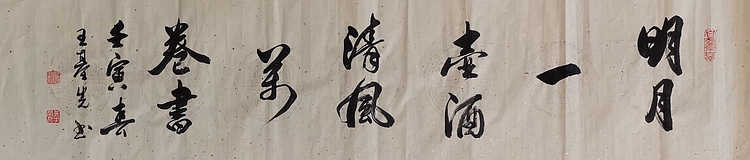 明月
一
壶酒
清風
万
卷書
壬寅春
王基先书